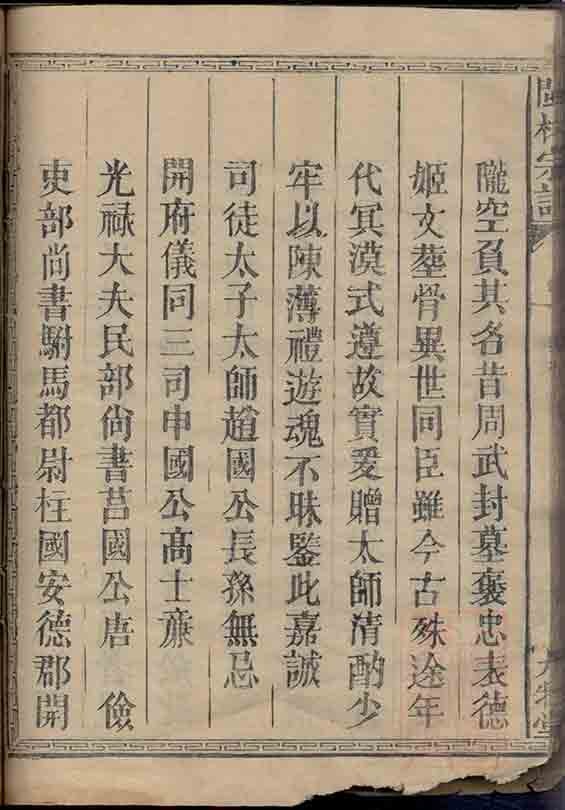 隴空負其名昔周武封墓褒忠表德
姬文塟骨異世同臣雖今古殊途年
代冥漠式遵故實爰贈太師清酌少
牢以陳薄禮遊魂不昧鑒此嘉誠
司徒太子太師趙國公長孫無忌
開府儀同三司申國公高士廉
光祿大夫民部尙書莒國公唐儉
吏部尚書駙馬都尉柱國安德郡開